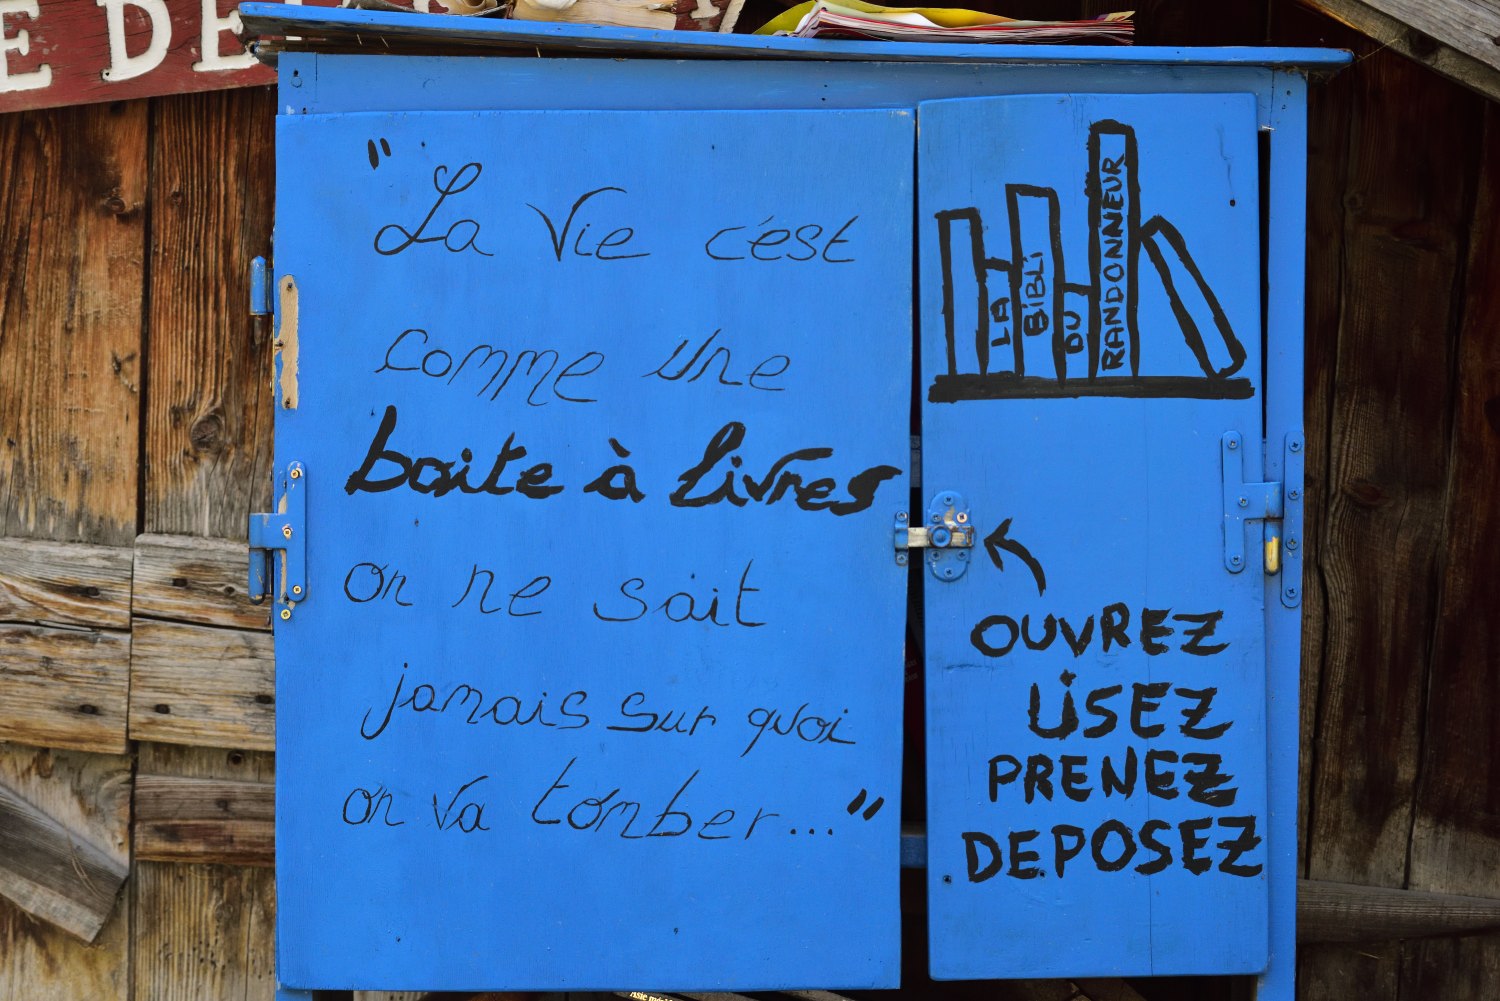 E DE
" La Vie c'est
comme une
boite à livres
on ne sait
jamais sur quoi
on va tomber... "
LA
BiBLi
DU
RANDONNEUR
OUVREZ
LiSEZ
PRENEZ
DEPOSEZ